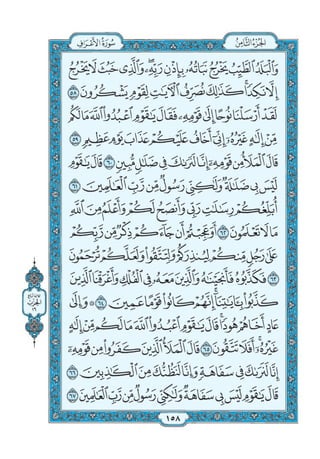 الجزء الثامن
سورة الأعراف
وَٱلۡبَلَدُ ٱلطَّيِّبُ يَخۡرُجُ نَبَاتُهُۥ بِإِذۡنِ رَبِّهِۦۖ وَٱلَّذِي خَبُثَ لَا يَخۡرُجُ
إِلَّا نَكِدٗاۚ كَذَٰلِكَ نُصَرِّفُ ٱلۡأٓيَٰتِ لِقَوۡمٖ يَشۡكُرُونَ ٥٨
لَقَدۡ أَرۡسَلۡنَا نُوحًا إِلَىٰ قَوۡمِهِۦ فَقَالَ يَٰقَوۡمِ ٱعۡبُدُواْ ٱللَّهَ مَا لَكُم
مِّنۡ إِلَٰهٍ غَيۡرُهُۥٓ إِنِّيٓ أَخَافُ عَلَيۡكُمۡ عَذَابَ يَوۡمٍ عَظِيمٖ ٥٩
قَالَ ٱلۡمَلَأُ مِن قَوۡمِهِۦٓ إِنَّا لَنَرَىٰكَ فِي ضَلَٰلٖ مُّبِينٖ ٦٠ قَالَ يَٰقَوۡمِ
لَيۡسَ بِي ضَلَٰلَةٞ وَلَٰكِنِّي رَسُولٞ مِّن رَّبِّ ٱلۡعَٰلَمِينَ ٦١
أُبَلِّغُكُمۡ رِسَٰلَٰتِ رَبِّي وَأَنصَحُ لَكُمۡ وَأَعۡلَمُ مِنَ ٱللَّهِ
مَا لَا تَعۡلَمُونَ ٦٢ أَوَعَجِبۡتُمۡ أَن جَآءَكُمۡ ذِكۡرٞ مِّن رَّبِّكُمۡ
عَلَىٰ رَجُلٖ مِّنكُمۡ لِيُنذِرَكُمۡ وَلِتَتَّقُواْ وَلَعَلَّكُمۡ تُرۡحَمُونَ
٦٣ فَكَذَّبُوهُ فَأَنجَيۡنَٰهُ وَٱلَّذِينَ مَعَهُۥ فِي ٱلۡفُلۡكِ وَأَغۡرَقۡنَا ٱلَّذِينَ
كَذَّبُواْ بِـَٔايَٰتِنَآۚ إِنَّهُمۡ كَانُواْ قَوۡمًا عَمِينَ ٦٤ ۞ وَإِلَىٰ
عَادٍ أَخَاهُمۡ هُودٗاۚ قَالَ يَٰقَوۡمِ ٱعۡبُدُواْ ٱللَّهَ مَا لَكُم مِّنۡ إِلَٰهٍ
غَيۡرُهُۥٓۚ أَفَلَا تَتَّقُونَ ٦٥ قَالَ ٱلۡمَلَأُ ٱلَّذِينَ كَفَرُواْ مِن قَوۡمِهِۦٓ
إِنَّا لَنَرَىٰكَ فِي سَفَاهَةٖ وَإِنَّا لَنَظُنُّكَ مِنَ ٱلۡكَٰذِبِينَ ٦٦
قَالَ يَٰقَوۡمِ لَيۡسَ بِي سَفَاهَةٞ وَلَٰكِنِّي رَسُولٞ مِّن رَّبِّ ٱلۡعَٰلَمِينَ ٦٧
الحزب
١٦
١٥٨